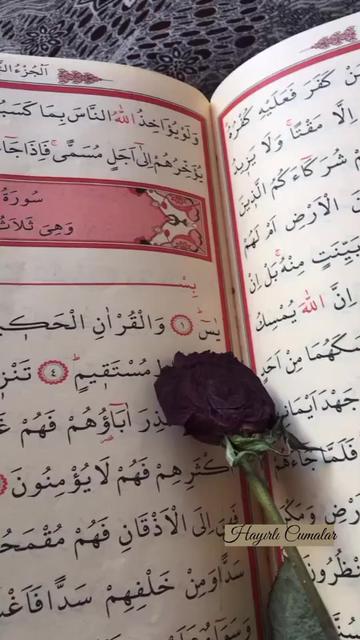 اَلْجُزْءُ
مَنْ كَفَرَ فَعَلَيْهِ كُفْرُهُ
اِلَّا مَقْتًا وَلَا يَزِيدُ
شُرَكَٓاءَكُمُ الَّذِينَ
الْاَرْضِ اَمْ لَهُمْ
بَيِّنَتٍ مِنْهُ بَلْ اِنْ
اِنَّ اللّٰهَ يُمْسِكُ
اَمْسَكَهُمَا مِنْ اَحَدٍ
جَهْدَ اَيْمَانِهِمْ
فَلَمَّا جَٓاءَهُمْ
وَلَوْ يُؤَاخِذُ اللّٰهُ النَّاسَ بِمَا كَسَبُوا
يُؤَخِّرُهُمْ اِلٰٓى اَجَلٍ مُسَمًّى فَاِذَا جَٓاءَ
سُورَةُ
وَهِىَ ثَلَاثٌ
بِسْــ
يٰسٓ ﴿١﴾ وَالْقُرْاٰنِ الْحَكِيمِ
مُسْتَقِيمٍ ﴿٤﴾ تَنْزِ
اٰبَٓاؤُهُمْ فَهُمْ
اَكْثَرِهِمْ فَهُمْ لَا يُؤْمِنُونَ
فَهِىَ اِلَى الْاَذْقَانِ فَهُمْ مُقْمَحُونَ
سَدًّا وَمِنْ خَلْفِهِمْ سَدًّا فَاَغْشَ
Hayırlı Cumalar